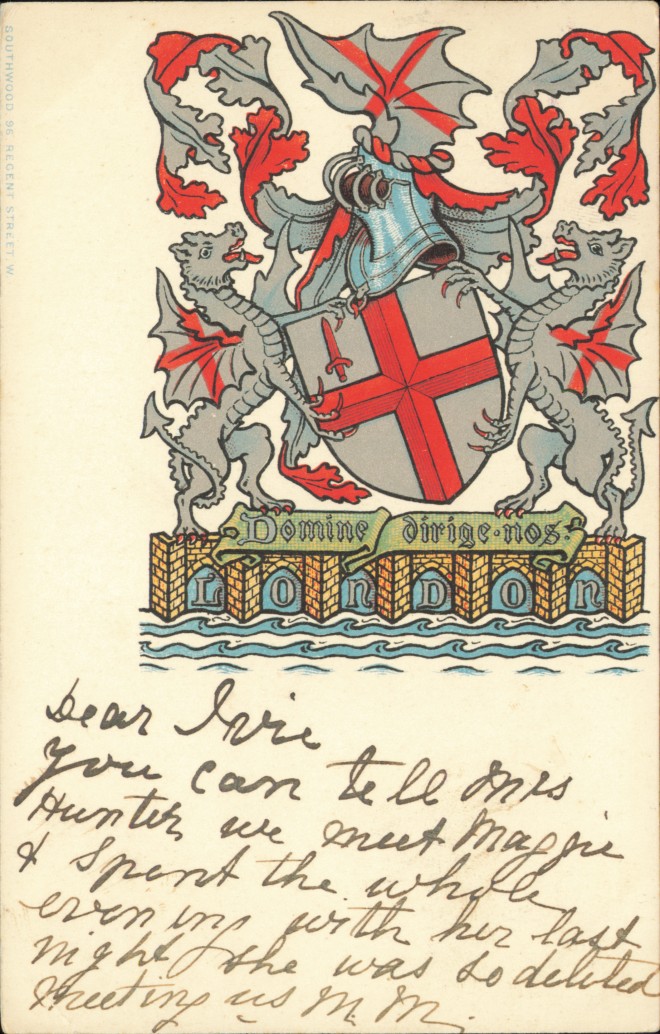 SOUTHWOOD 96 REGENT STREET W
Domine dirige·nos·
LONDON
Dear Ivie
you can tell Mrs
Hunter we meet Maggie
& spent the whole
evening with her last
night she was so delited
meeting us M. M.